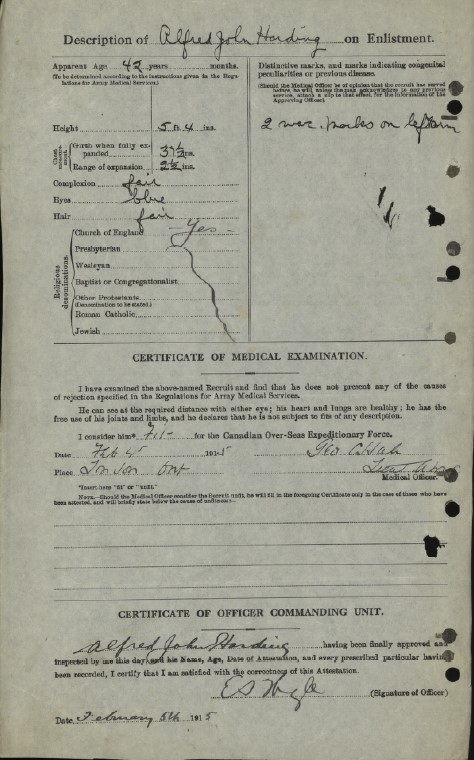 Description of Alfred John Harding on Enlistment.
Apparent Age 42 years months.
(To be determined according to the instructions given in the Regulations for Army Medical Services.)
Height 5 ft. 4 ins.
Chest measurement.
Girth when fully expanded 37½ ins.
Range of expansion 2½ ins.
Complexion fair
Eyes blue
Hair fair
Religious denominations.
Church of England Yes
Presbyterian
Wesleyan
Baptist or Congregationalist
Other Protestants
(Denomination to be stated.)
Roman Catholic
Jewish
Distinctive marks, and marks indicating congenital peculiarities or previous disease.
(Should the Medical Officer be of opinion that the recruit has served before, he will, unless the man acknowledges to any previous service, attach a slip to that effect, for the information of the Approving Officer).
2 vac. marks on left arm
CERTIFICATE OF MEDICAL EXAMINATION.
I have examined the above-named Recruit and find that he does not present any of the causes
of rejection specified in the Regulations for Army Medical Services.
He can see at the required distance with either eye; his heart and lungs are healthy; he has the
free use of his joints and limbs, and he declares that he is not subject to fits of any description.
I consider him* Fit for the Canadian Over-Seas Expeditionary Force.
Date Feb 4 1915
Place London Ont
Medical Officer.
*Insert here "fit" or "unfit."
NOTE.—Should the Medical Officer consider the Recruit unfit, he will fill in the foregoing Certificate only in the case of those who have
been attested, and will briefly state below the cause of unfitness:—
CERTIFICATE OF OFFICER COMMANDING UNIT.
Alfred John Harding having been finally approved and
inspected by me this day, and his Name, Age, Date of Attestation, and every prescribed particular having
been recorded, I certify that I am satisfied with the correctness of this Attestation.
(Signature of Officer)
Date February 5th 1915